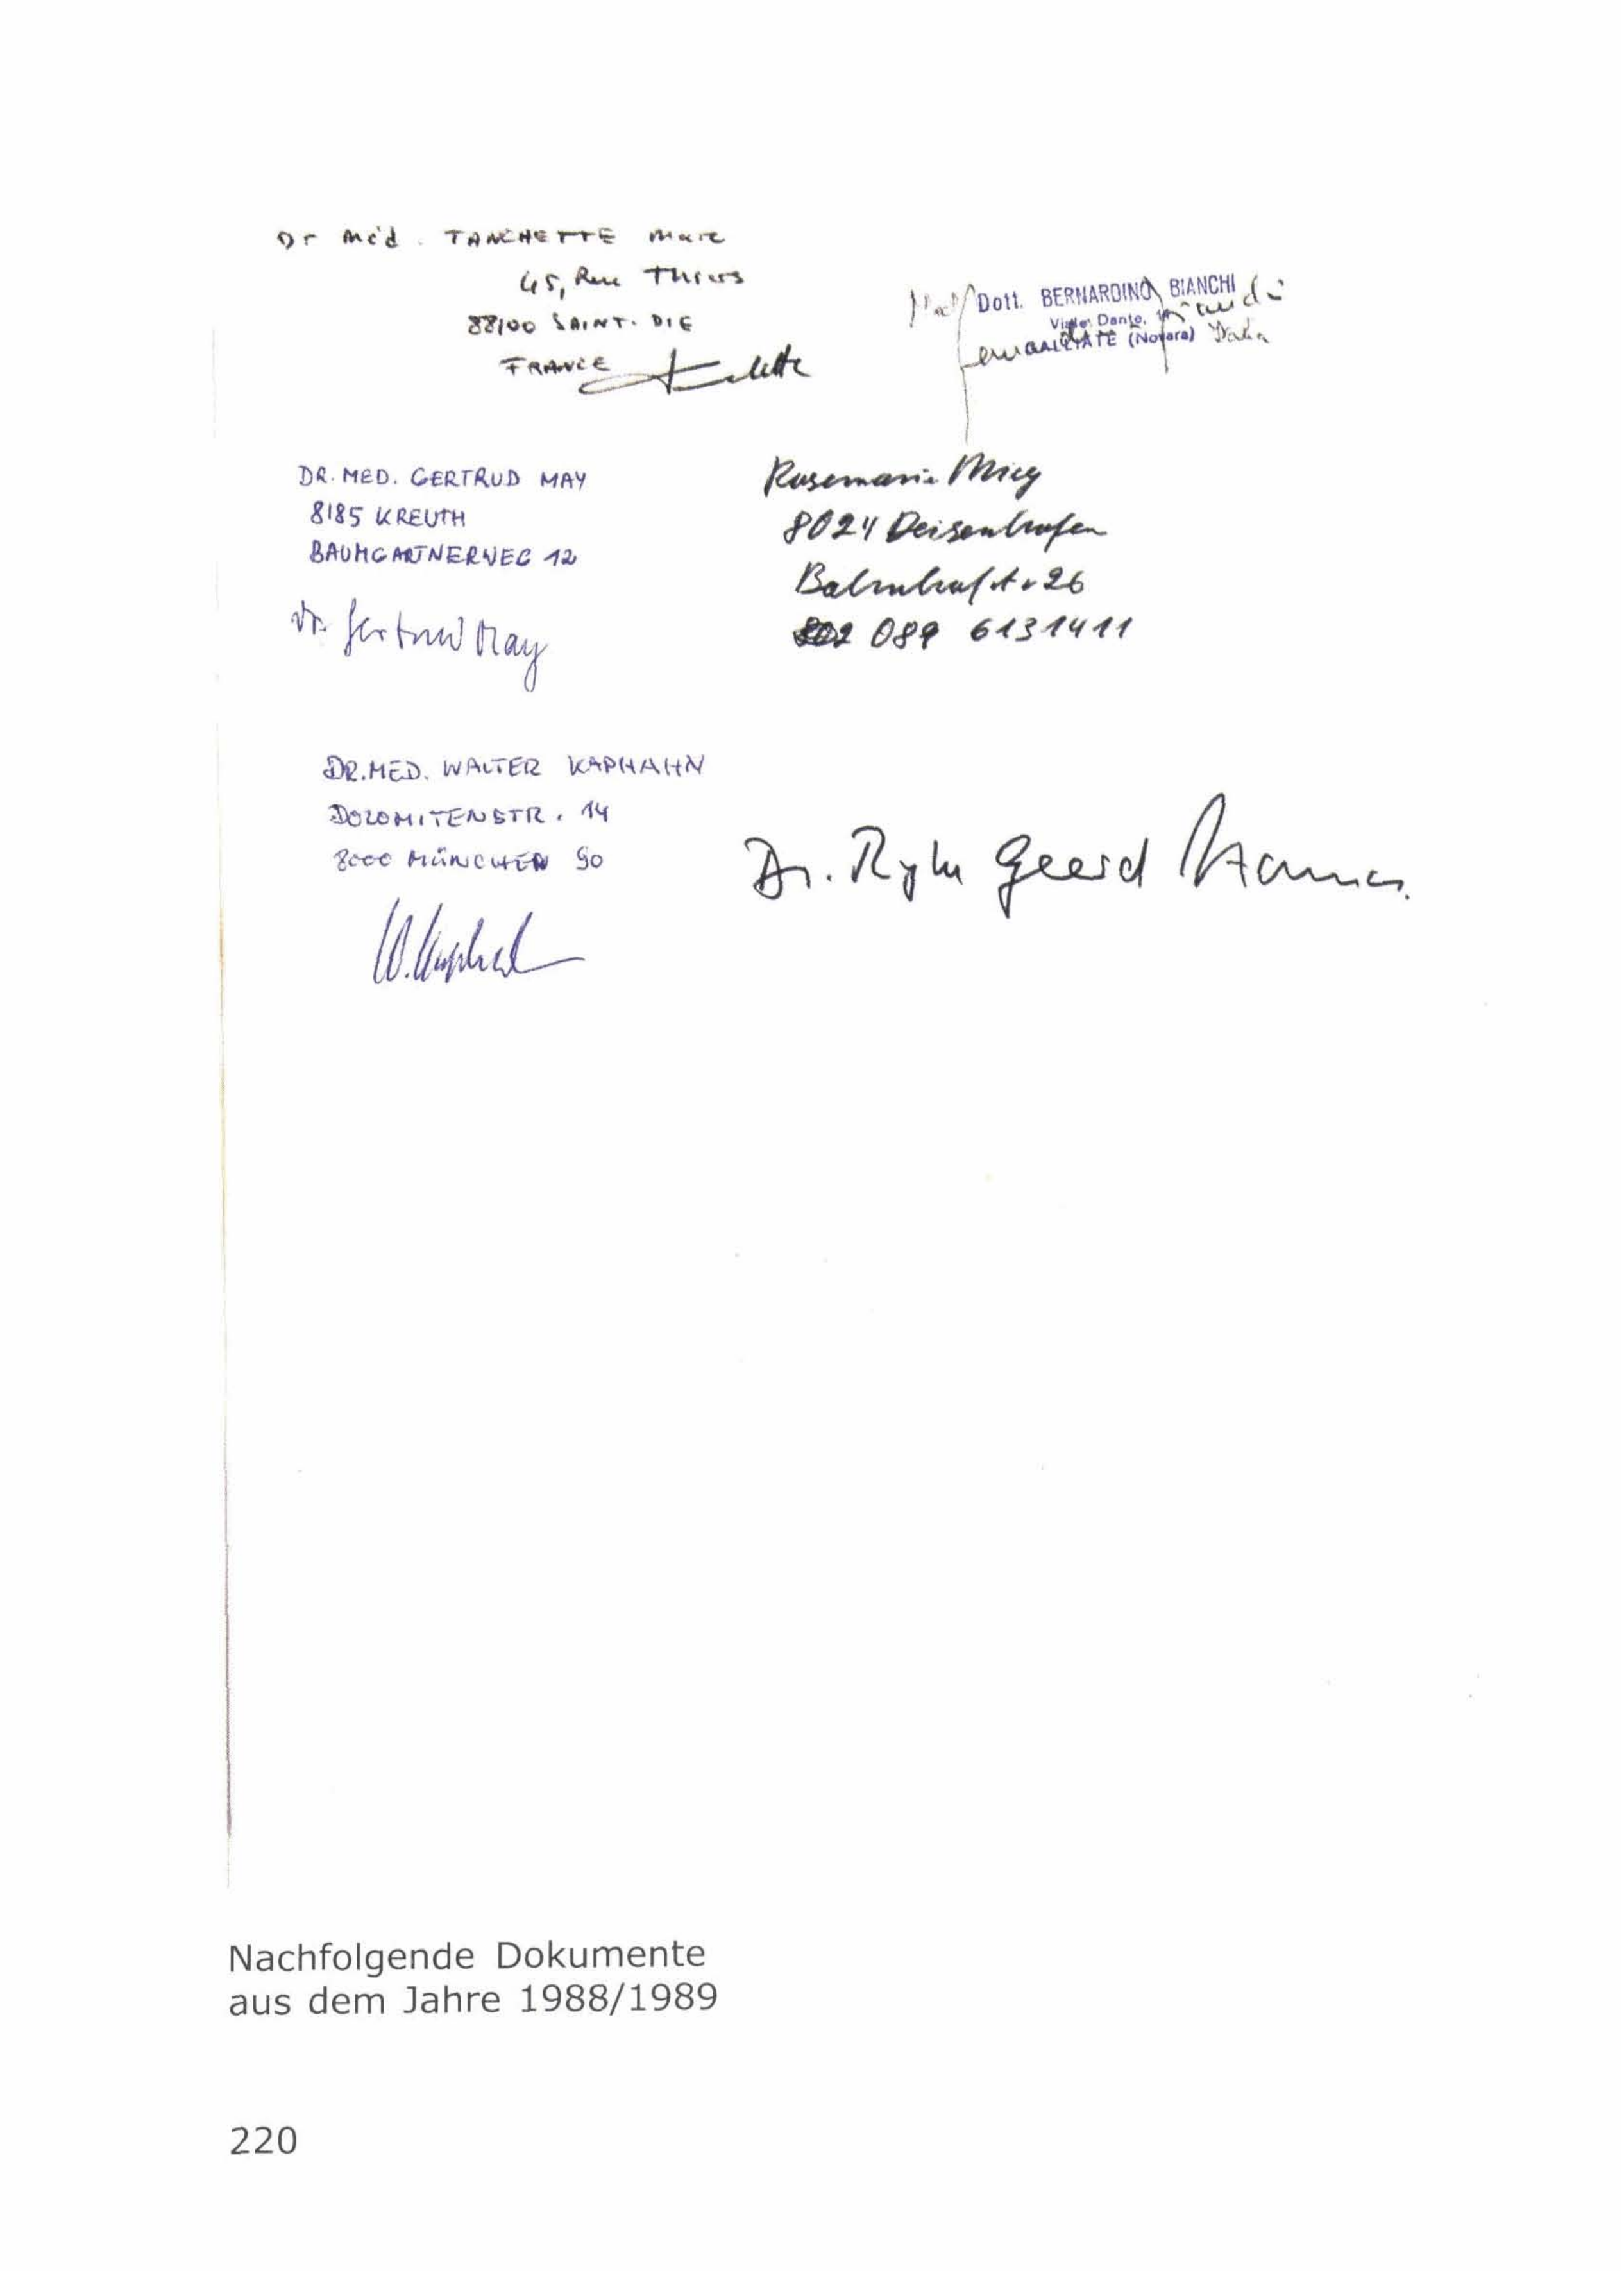 Dr méd. TANCHETTE Marc
45, Rue Thiers
88100 SAINT. DIE
FRANCE
Dott. BERNARDINO BIANCHI
Viale Dante,
GALLIATE (Novara) Italia
DR. MED. GERTRUD MAY
8185 KREUTH
BAUMGARTNERWEG 12
Dr. Gertrud May
Rosemarie Mieg
8024 Deisenhofen
Bahnhofstr 26
089 6131411
DR. MED. WALTER KAPHAHN
DOLOMITENSTR. 14
8000 MÜNCHEN 90
Dr. Ryke Geerd Hamer.
Nachfolgende Dokumente
aus dem Jahre 1988/1989
220